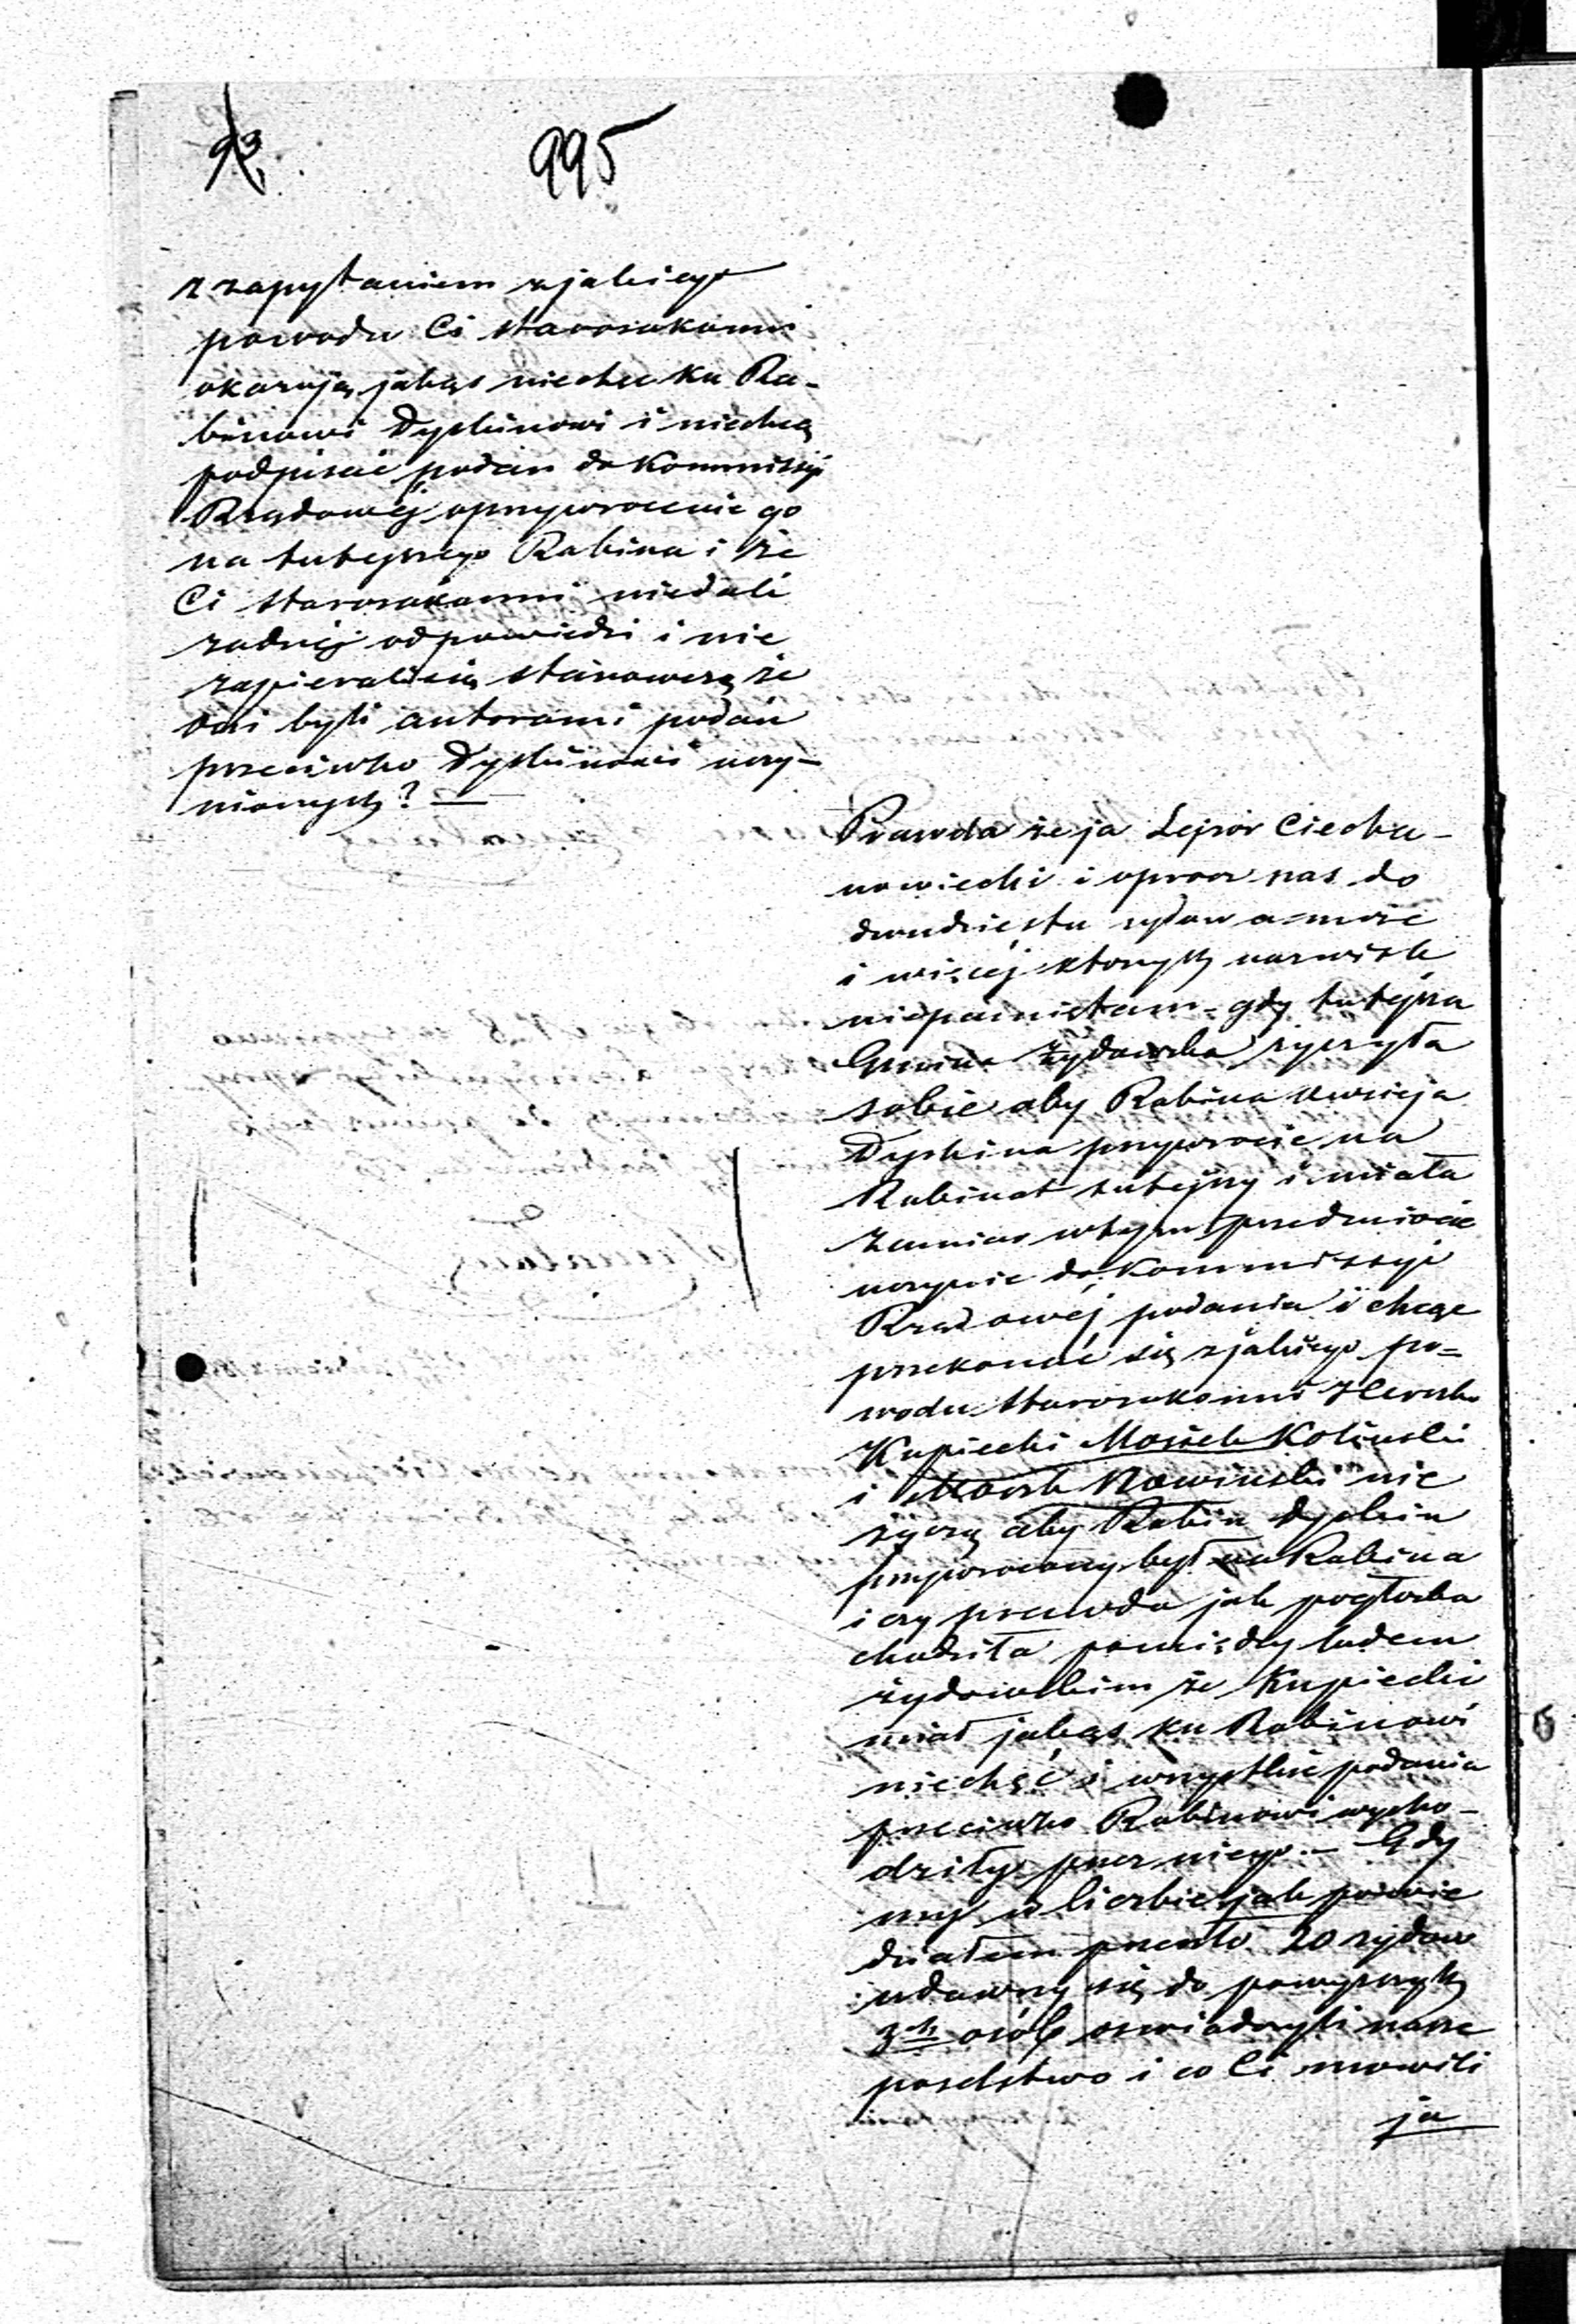 93
995
z zapytaniem z jakiego
powodu Ci starozakonni
okazują jakąś niechu ku Ra-
binowi Dyskinowi i niechcą
podpisać podań do Kommissyi
Rządowéj o przywrocenie go
na tutejszego Rabina i że
Ci starozakonni niedali
zadnéj odpowiedzi i nie
zapierali się stanowczą że
oni byli autorami podań
przeciwko Dyskinowi uczy-
nionych? —
Prawda że ja Lejzor Ciecha-
nowiecki i oprocz nas do
dwudziestu żydow a może
i więcéj ktorych nazwisk
niepamiętam - gdy tutejsza
Gmina Żydowska życzyła
sobie aby Rabina
Dyskina przywrocić na
Rabinat tutejszy i miała
zamiar w tym przedmiocie
uczynić do Kommissyi
Rządowéj podania i chcąc
przekonać się z jakiego po-
wodu starozakonni Hersko
Kupiecki Mosiek Koliński
i Mosk Nowinski nie
życzą aby Rabin Dyskin
przywrocony był na Rabina
i czy prawda jak pogłoska
chodziła pomiędzy ludem
żydowskim że Kupiecki
miał jakąś ku Rabinowi
niechęć i wszystkie podania
przeciwko Rabinowi wycho-
dziły przez niego. - Gdy
my w liczbie jak powie
działem przeszło 20 żydow
udawszy się do powyzszych
3ch osób oswiadczyli nasze
poselstwo i co Ci mowili
ja